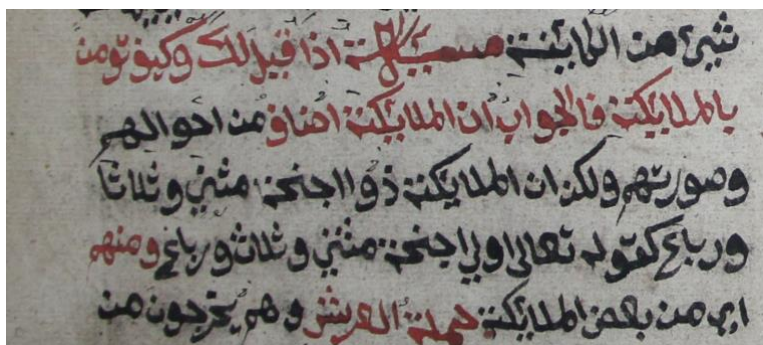 شيئ من الملئكة مسئلة اذا قيل لك وكيف تؤمن
بالملايكة فالجواب ان الملايكة اصناف من احوالهم
وصورتهم ولكن ان الملايكة ذوا اجنحة مثنى وثلاثا
ورباع كقوله تعالى اولي اجنحة مثنى وثلاث ورباع ومنهم
اي من بعض الملايكة حملة العرش وهم يخرجون من